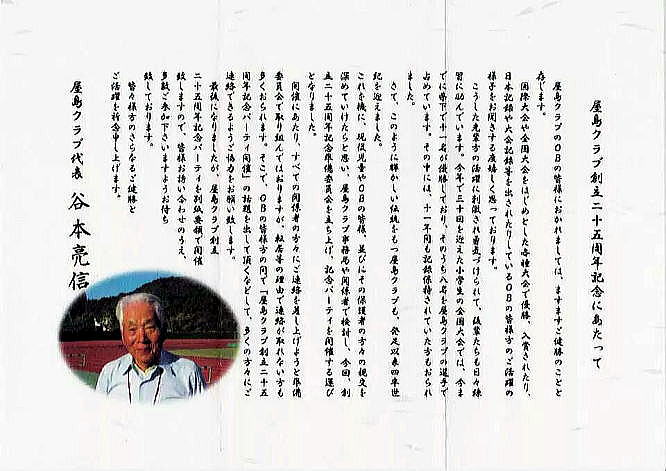 屋島クラブ創立二十五周年記念にあたって
屋島クラブのOBの皆様におかれましては、ますますご健勝のことと
存じます。
国際大会や全国大会をはじめとした各種大会で優勝、入賞されたり、
日本記録や大会記録等を出されたりしているOBの皆様方のご活躍の
様子をお聞きする度嬉しく思っております。
こうした先輩方の活躍に刺激され勇気づけられて、後輩たちも日々練
習に励んでいます。今年で三十回を迎えた小学生の全国大会では、今ま
でに県下で十一名が優勝しており、そのうち八名を屋島クラブの選手で
占めています。その中には、十一年間も記録保持されていた方もおられ
ました。
さて、このように輝かしい伝統をもつ屋島クラブも、発足以来四半世
紀を迎えました。
これを機に、現役児童やOBの皆様、並びにその保護者の方々の親交を
深めていけたらと思い、屋島クラブ事務局や関係者で検討し、今回、創
立二十五周年記念準備委員会を立ち上げ、記念パーティを開催する運び
となりました。
開催にあたり、すべての関係者の方々にご連絡を差し上げようと準備
委員会で取り組んではおりますが、転居等の理由で連絡が取れない方も
多くおられます。そこで、OBの皆様方の間で「屋島クラブ創立二十五
周年記念パーティ開催」の話題を出して頂くなどして、多くの方々にご
連絡できるようご協力をお願い致します。
最後になりましたが、屋島クラブ創立
二十五周年記念パーティを別紙要領で開催
致しますので、皆様お誘い合わせのうえ、
多数ご参加下さいますようお待ち
致しております。
皆々様方のさらなるご健勝と
ご活躍を祈念申し上げます。
屋島クラブ代表 谷本亮信